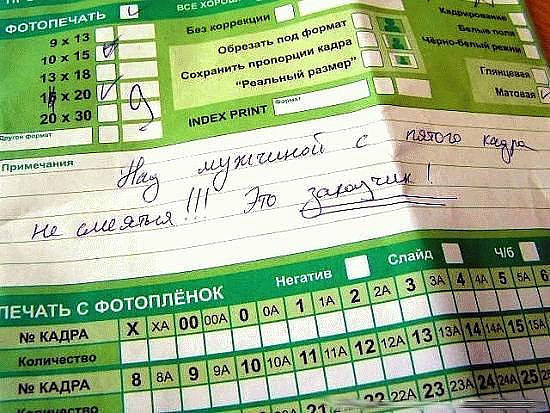 ФОТОПЕЧАТЬ
9 x 13
10 x 15
13 x 18
20
20 x 30
Другое формат
Без коррекции
Обрезать под формат
Сохранить пропорции кадра
"Реальный размер"
INDEX PRINT
Формат
Кадрирование
Белые поля
Чёрно-белый режим
Глянцевая
Матовая
Примечания
Над мужчиной с пятого кадра
не смеяться!!! Это заказчик!
Негатив Слайд Ч/б
ПЕЧАТЬ С ФОТОПЛЁНОК
№ КАДРА X XA 00 00A 0 0A 1 1A 2 2A 3 3A 4 4A 5 5A 6
Количество
№ КАДРА 8 8A 9 9A 10 10A 11 11A 12 12A 13 13A 14 14A 15 15A
Количество 21 22A 23 23A 24 24A 25 25A